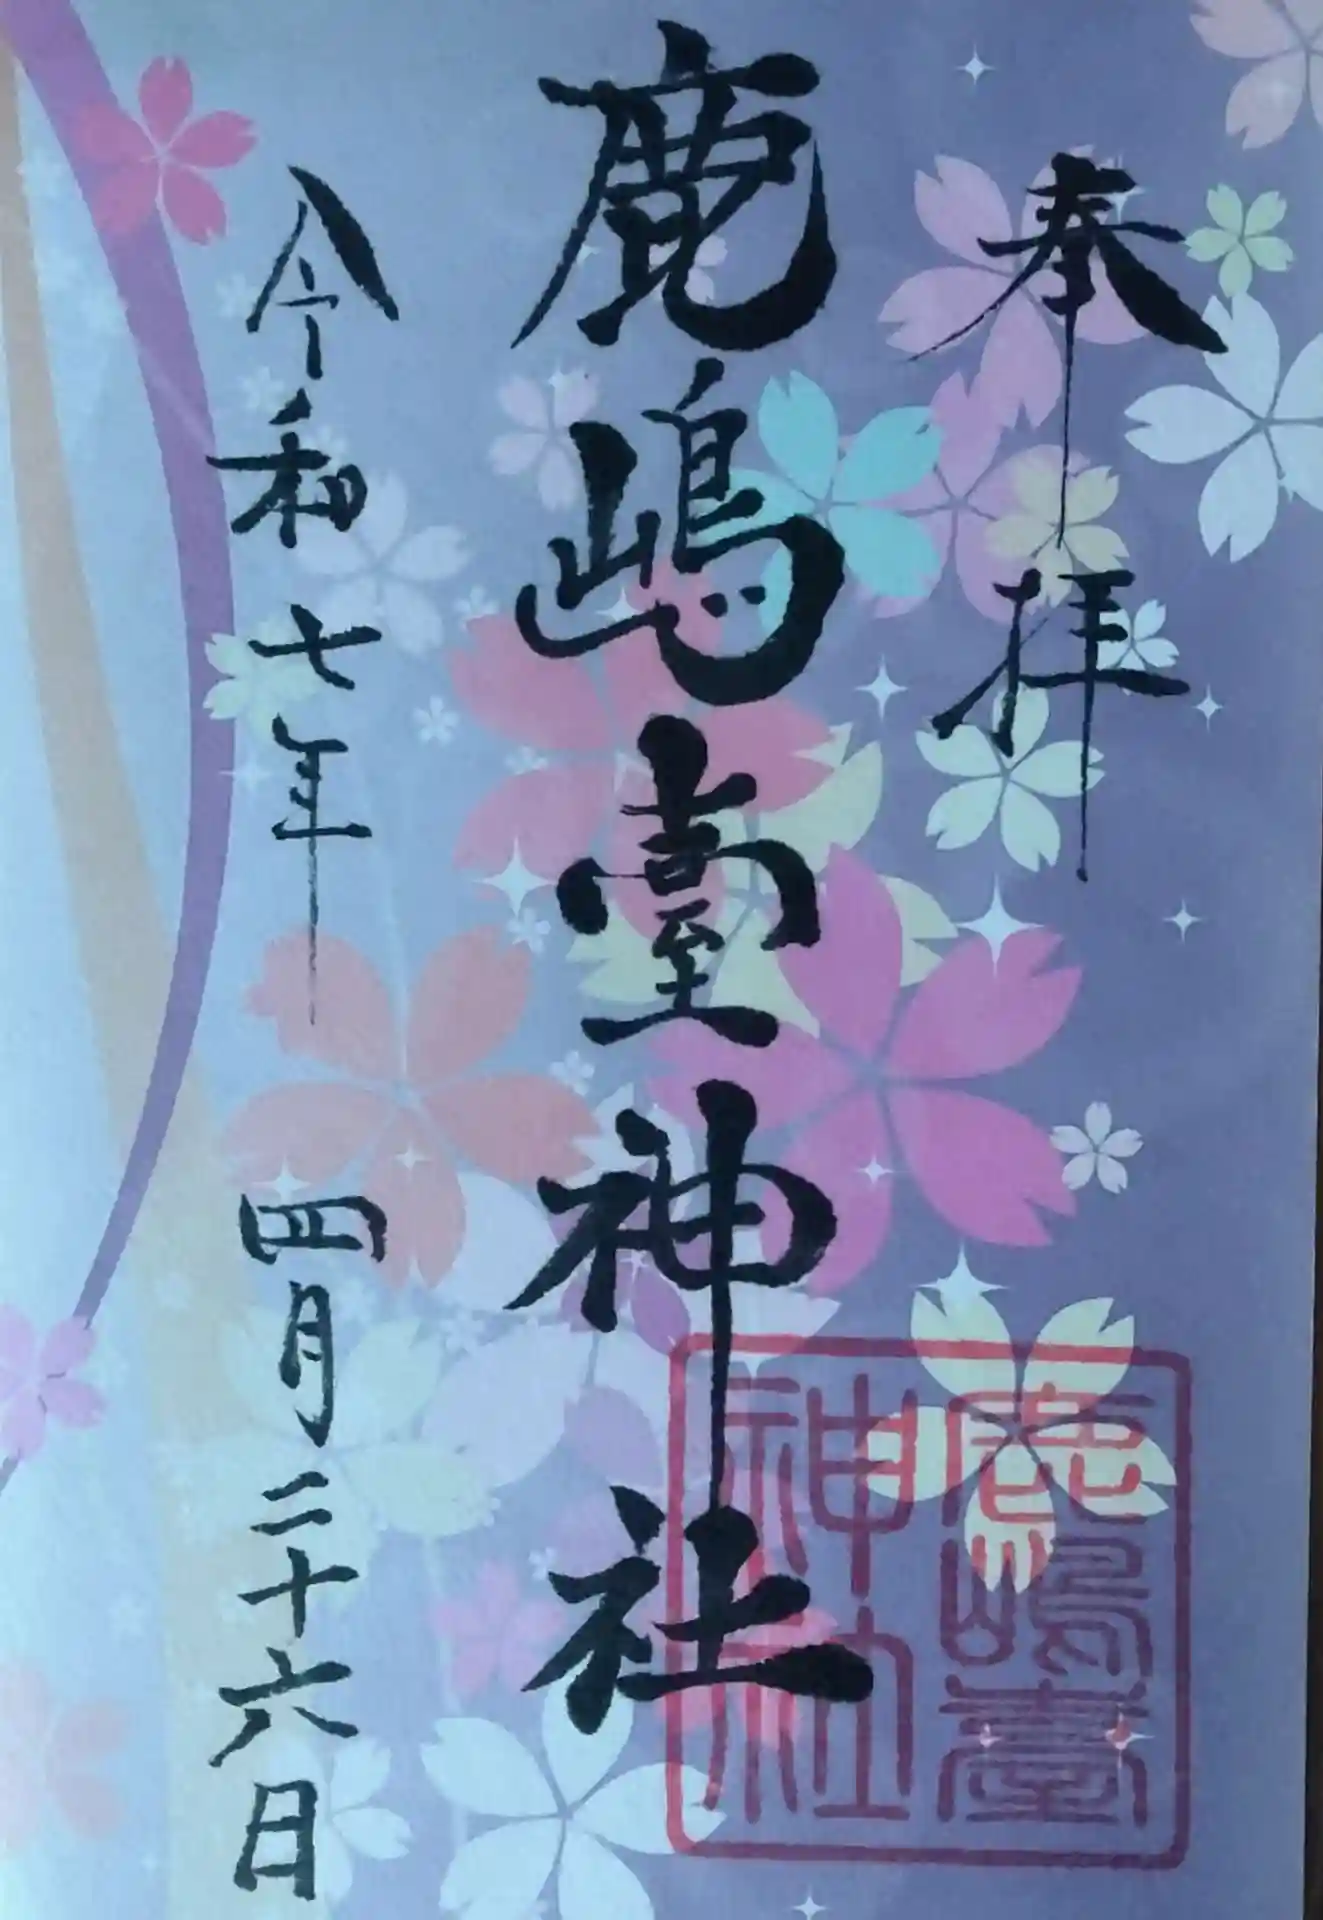 奉拝
鹿嶋臺神社
鹿嶋臺
神社
令和七年四月二十六日